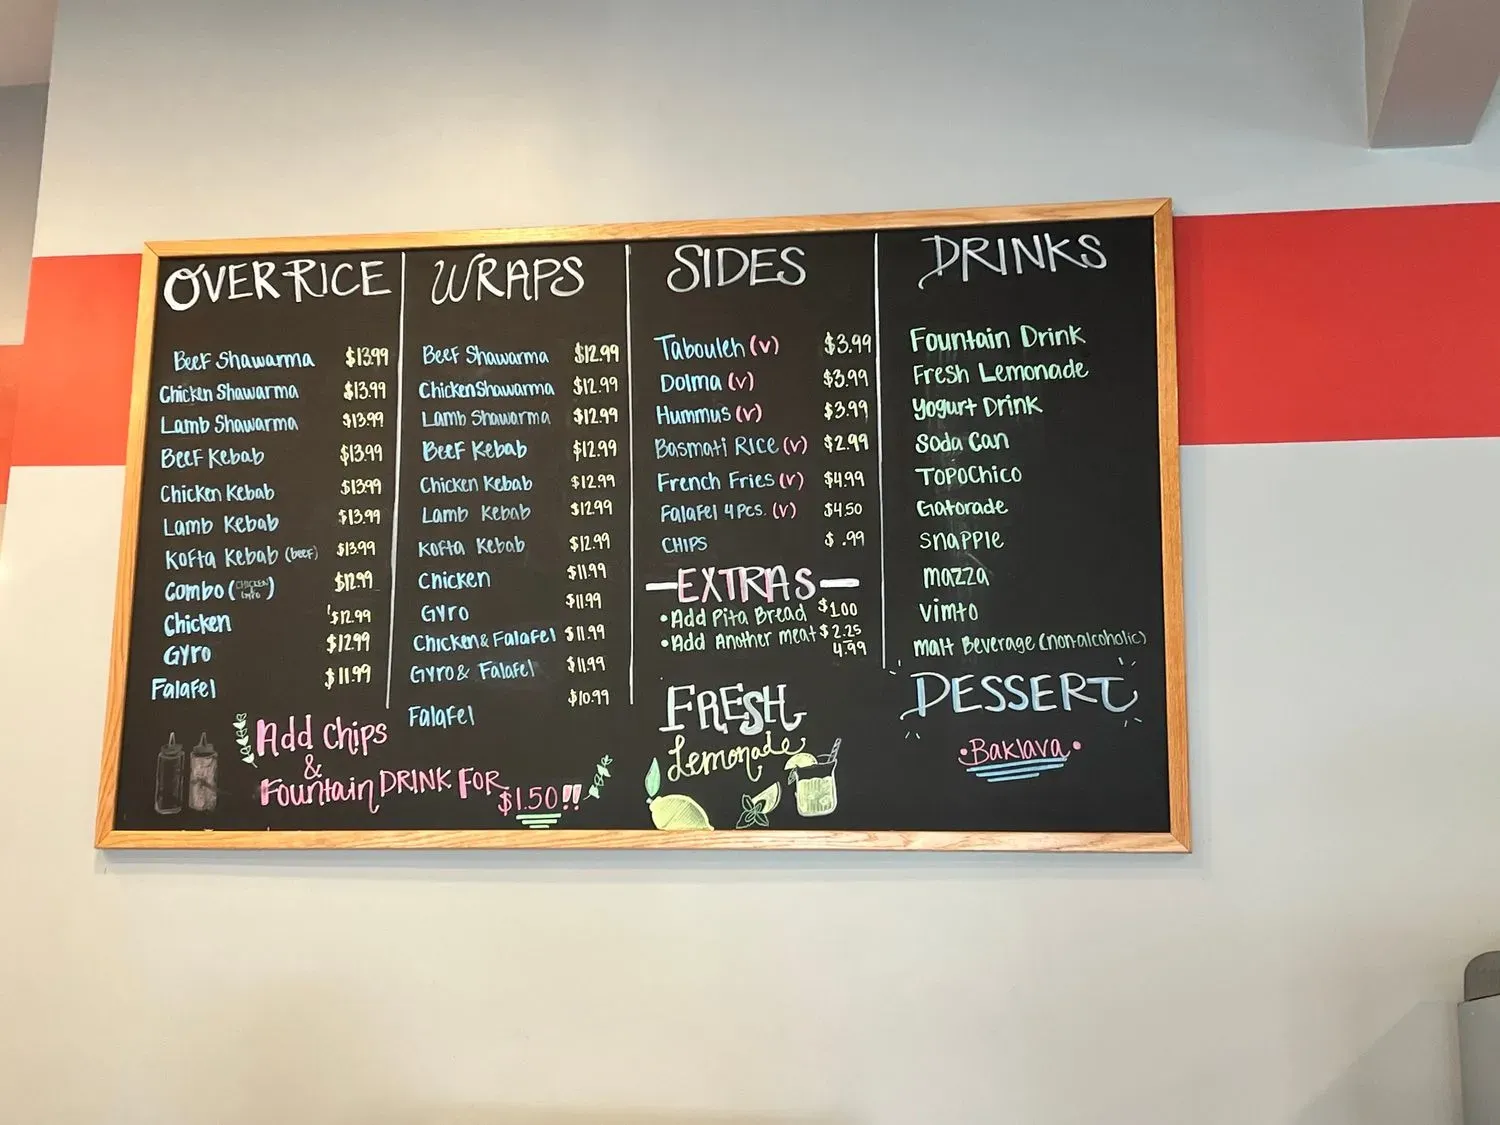 OVER RICE
Beef Shawarma $13.99
Chicken Shawarma $13.99
Lamb Shawarma $13.99
Beef Kebab $13.99
Chicken Kebab $13.99
Lamb Kebab $13.99
Kofta Kebab (beef) $13.99
Combo (CHICKEN GYRO) $12.99
Chicken $12.99
Gyro $12.99
Falafel $11.99
Add Chips
&
Fountain DRINK FOR
$1.50!!
WRAPS
Beef Shawarma $12.99
Chicken Shawarma $12.99
Lamb Shawarma $12.99
Beef Kebab $12.99
Chicken Kebab $12.99
Lamb Kebab $12.99
Kofta Kebab $12.99
Chicken $11.99
Gyro $11.99
Chicken & Falafel $11.99
Gyro & Falafel $11.99
Falafel $10.99
SIDES
Tabouleh (v) $3.99
Dolma (v) $3.99
Hummus (v) $3.99
Basmati Rice (v) $2.99
French Fries (v) $4.99
Falafel 4 Pcs. (v) $4.50
CHIPS $ .99
EXTRAS
• Add Pita Bread $1.00
• Add Another meat $2.25 - 4.99
FRESH
Lemonade
DRINKS
Fountain Drink
Fresh Lemonade
Yogurt Drink
Soda Can
TOPOCHICO
Gatorade
snapple
mazza
vimto
malt Beverage (non-alcoholic)
DESSERT
• Baklava •